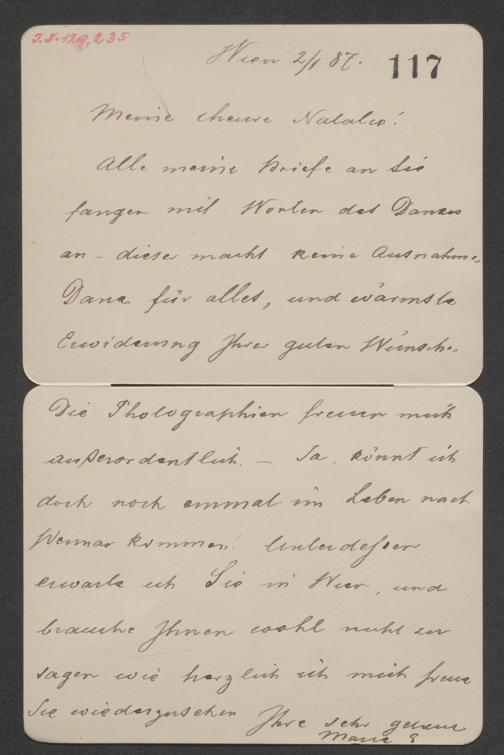 J.N. 129,235
Wien 2/1 87.
117
Meine theure Natalie!
Alle meine Briefe an Sie
fangen mit Worten des Dankes
an – dieser macht keine Ausnahme
Dank für alles, und wärmste
Erwiderung Ihrer guten Wünsche.
Die Photographien freuen mich
außerordentlich. – Ja, könnt ich
doch noch einmal im Leben nach
Weimar kommen! Unterdessen
erwarte ich Sie in Wien, und
brauche Ihnen wohl nicht zu
sagen wie herzlich ich mich freue
Sie wiederzusehen Ihre sehr getreue
Marie E